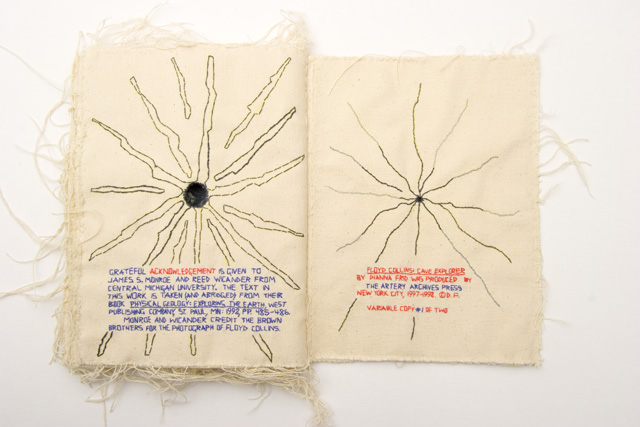 GRATEFUL ACKNOWLEDGEMENT IS GIVEN TO
JAMES S. MONROE AND REED WICANDER FROM
CENTRAL MICHIGAN UNIVERSITY. THE TEXT IN
THIS WORK IS TAKEN (AND ABRIDGED) FROM THEIR
BOOK PHYSICAL GEOLOGY: EXPLORING THE EARTH, WEST
PUBLISHING COMPANY, ST. PAUL, MN: 1992, PP. 485-486.
MONROE AND WICANDER CREDIT THE BROWN
BROTHERS FOR THE PHOTOGRAPH OF FLOYD COLLINS.
FLOYD COLLINS: CAVE EXPLORER
BY DIANNA FRID WAS PRODUCED BY
THE ARTERY ARCHIVES PRESS
NEW YORK CITY, 1997-1998. © D.F.
VARIABLE COPY #1 OF TWO